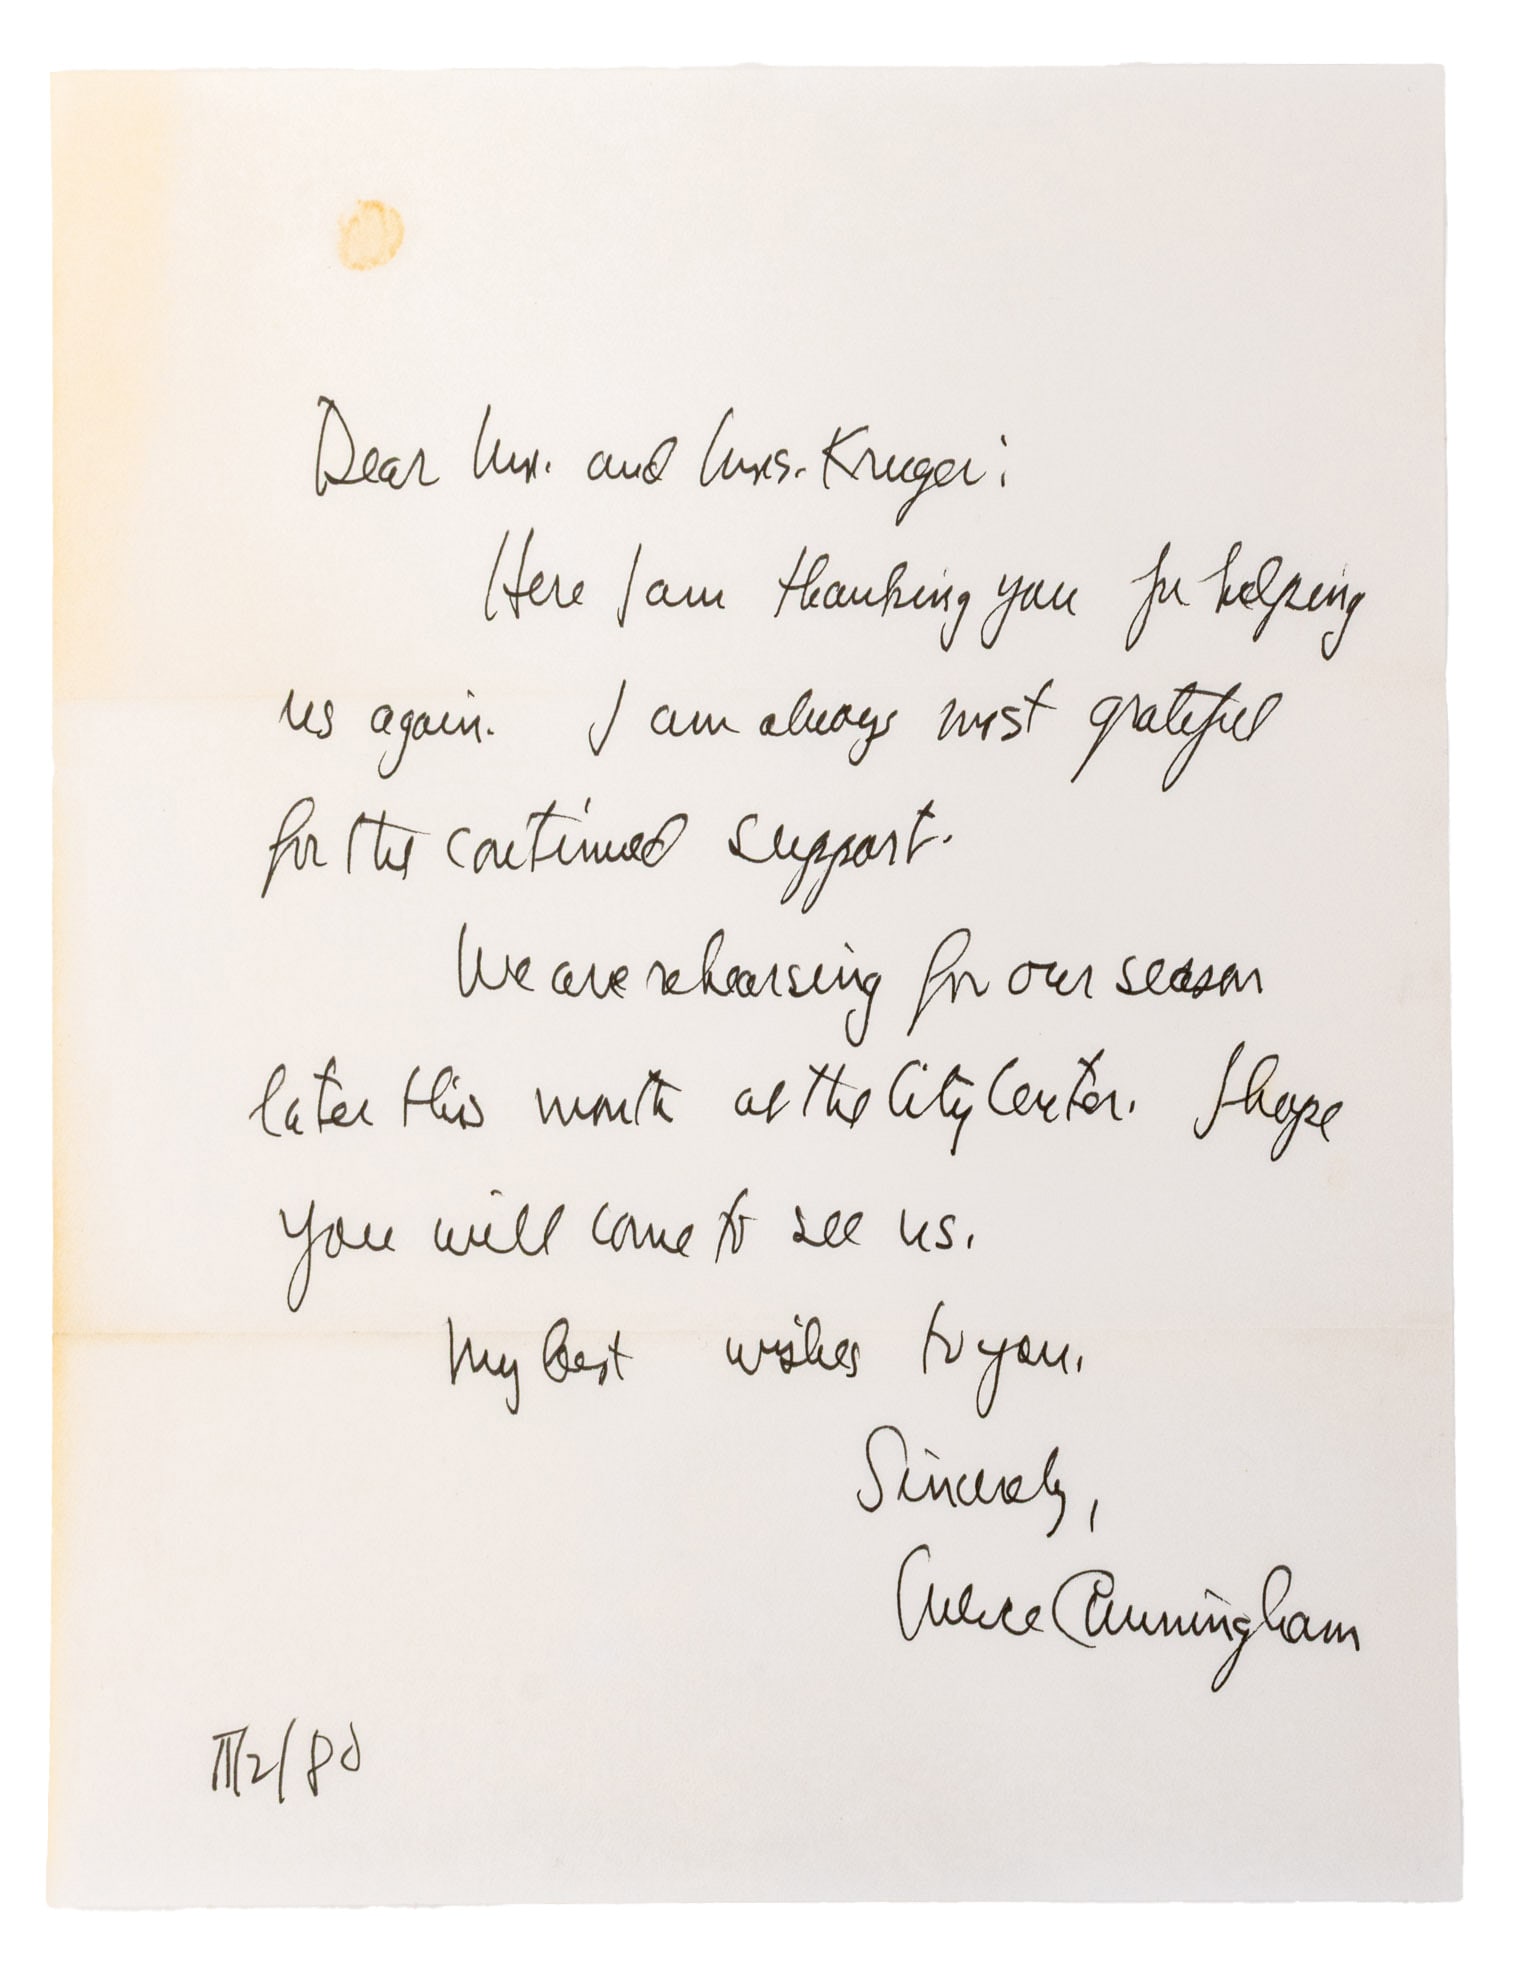 Dear Mr. and Mrs. Kruger:
Here I am thanking you for helping
us again. I am always most grateful
for the continued support.
We are rehearsing for our season
later this month at the City Center. I hope
you will come to see us.
My best wishes to you.
Sincerely,
Merce Cunningham
II/2/80